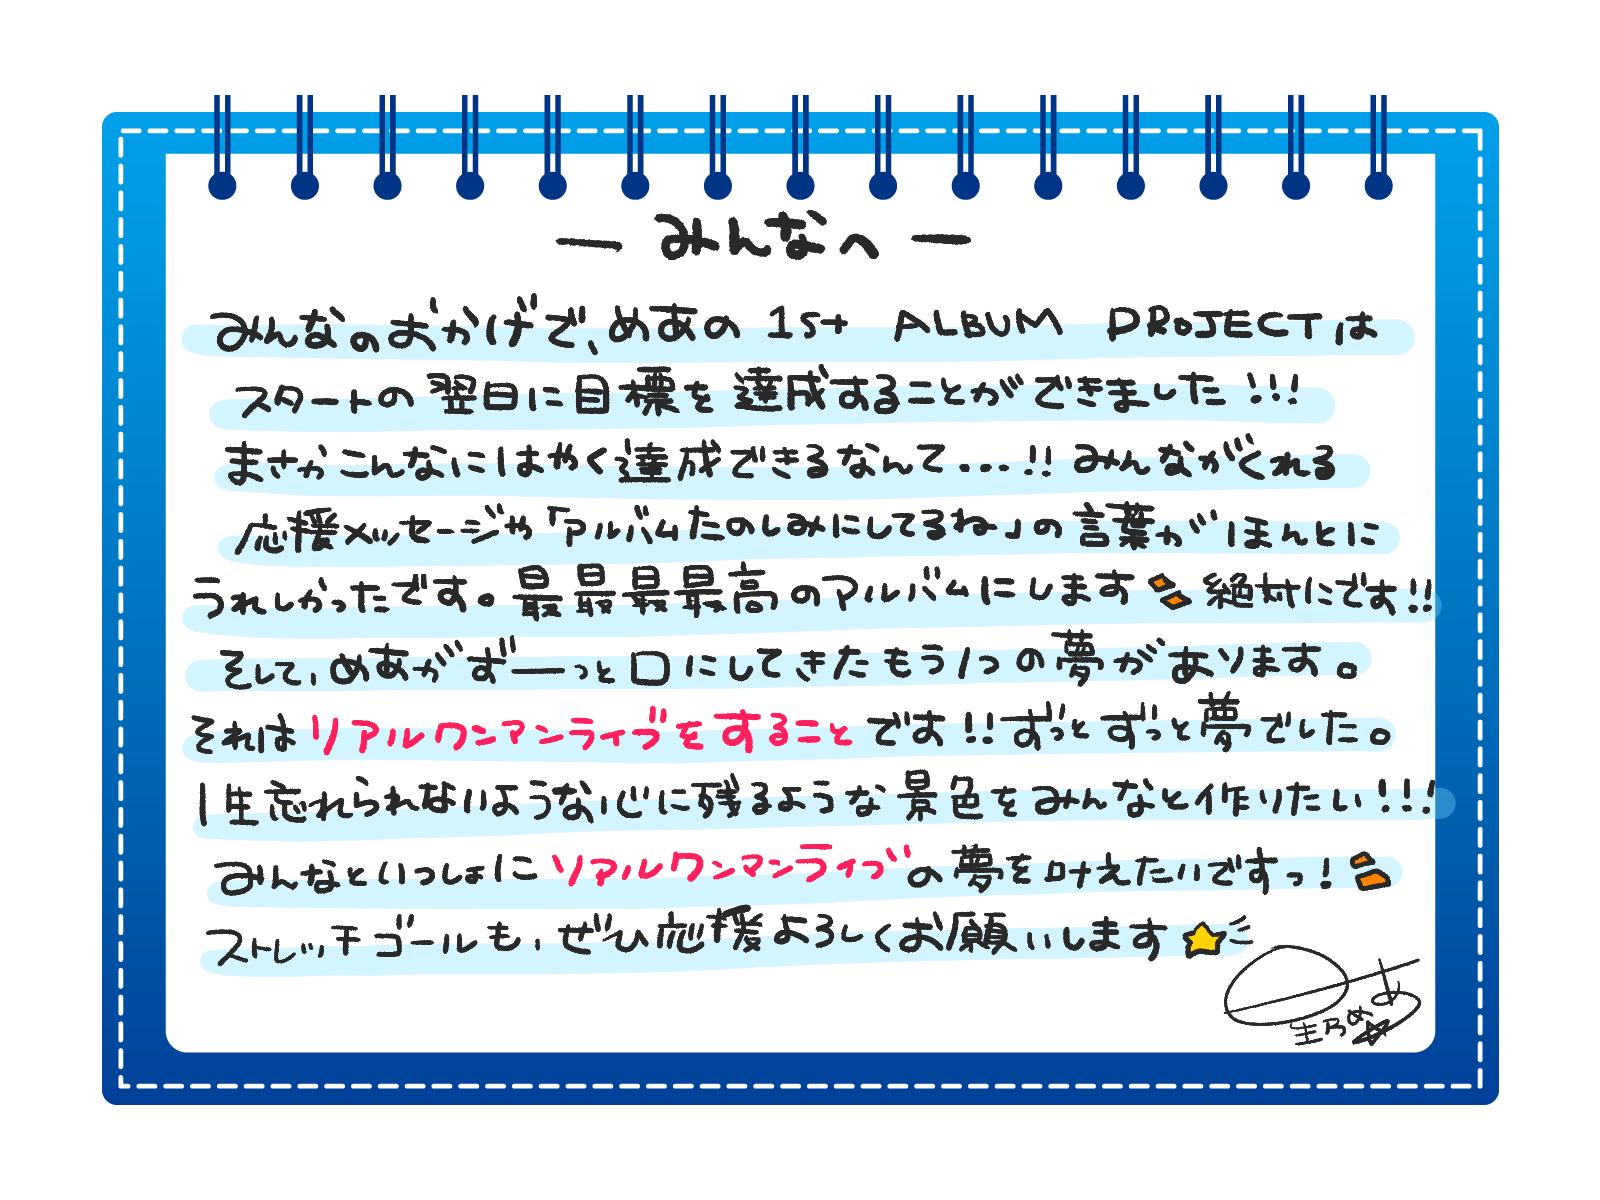 — みんなへ —
みんなのおかげで、めあの 1st ALBUM PROJECTは
スタートの翌日に目標を達成することができました!!!
まさかこんなにはやく達成できるなんて...!! みんながくれる
応援メッセージや「アルバムたのしみにしてるね」の言葉がほんとに
うれしかったです。最最最最高のアルバムにします 絶対にです!!
そして、めあがずーーっと口にしてきたもう1つの夢があります。
それはリアルワンマンライブをすることです!!ずっとずっと夢でした。
1生忘れられないような心に残るような景色をみんなと作りたい!!!
みんなといっしょにリアルワンマンライブの夢を叶えたいですっ!
ストレッチゴールも、ぜひ応援よろしくお願いします⭐
生乃めあ